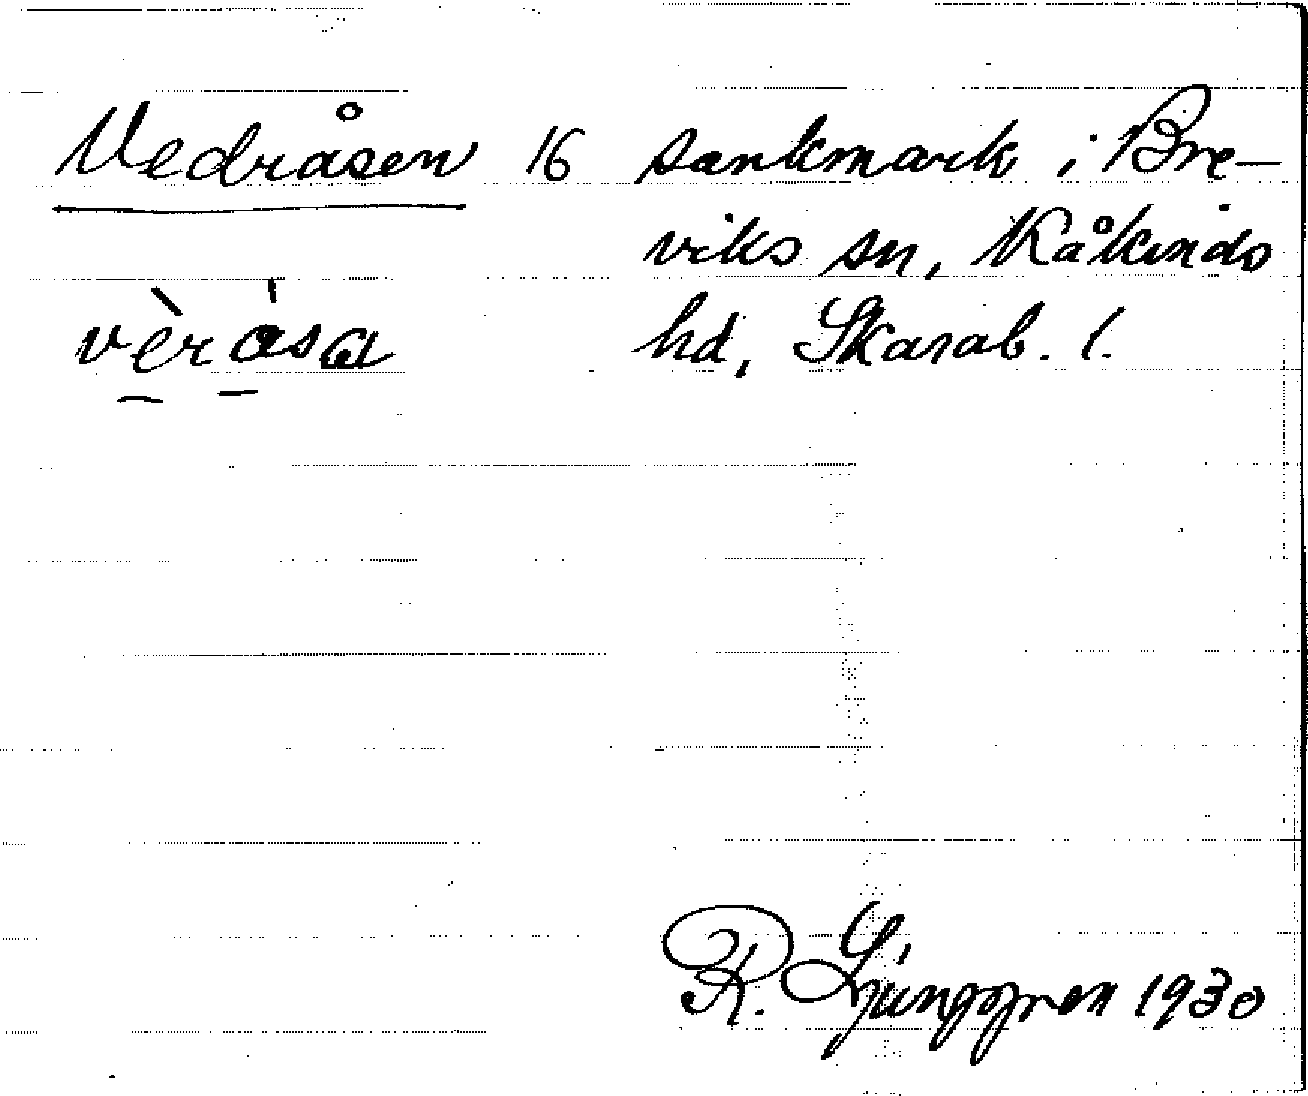 Vedråsen 16 sankmark i Bre-
viks sn, Kåkinds
vèråsa hd, Skarab. l.
R. Ljunggren 1930